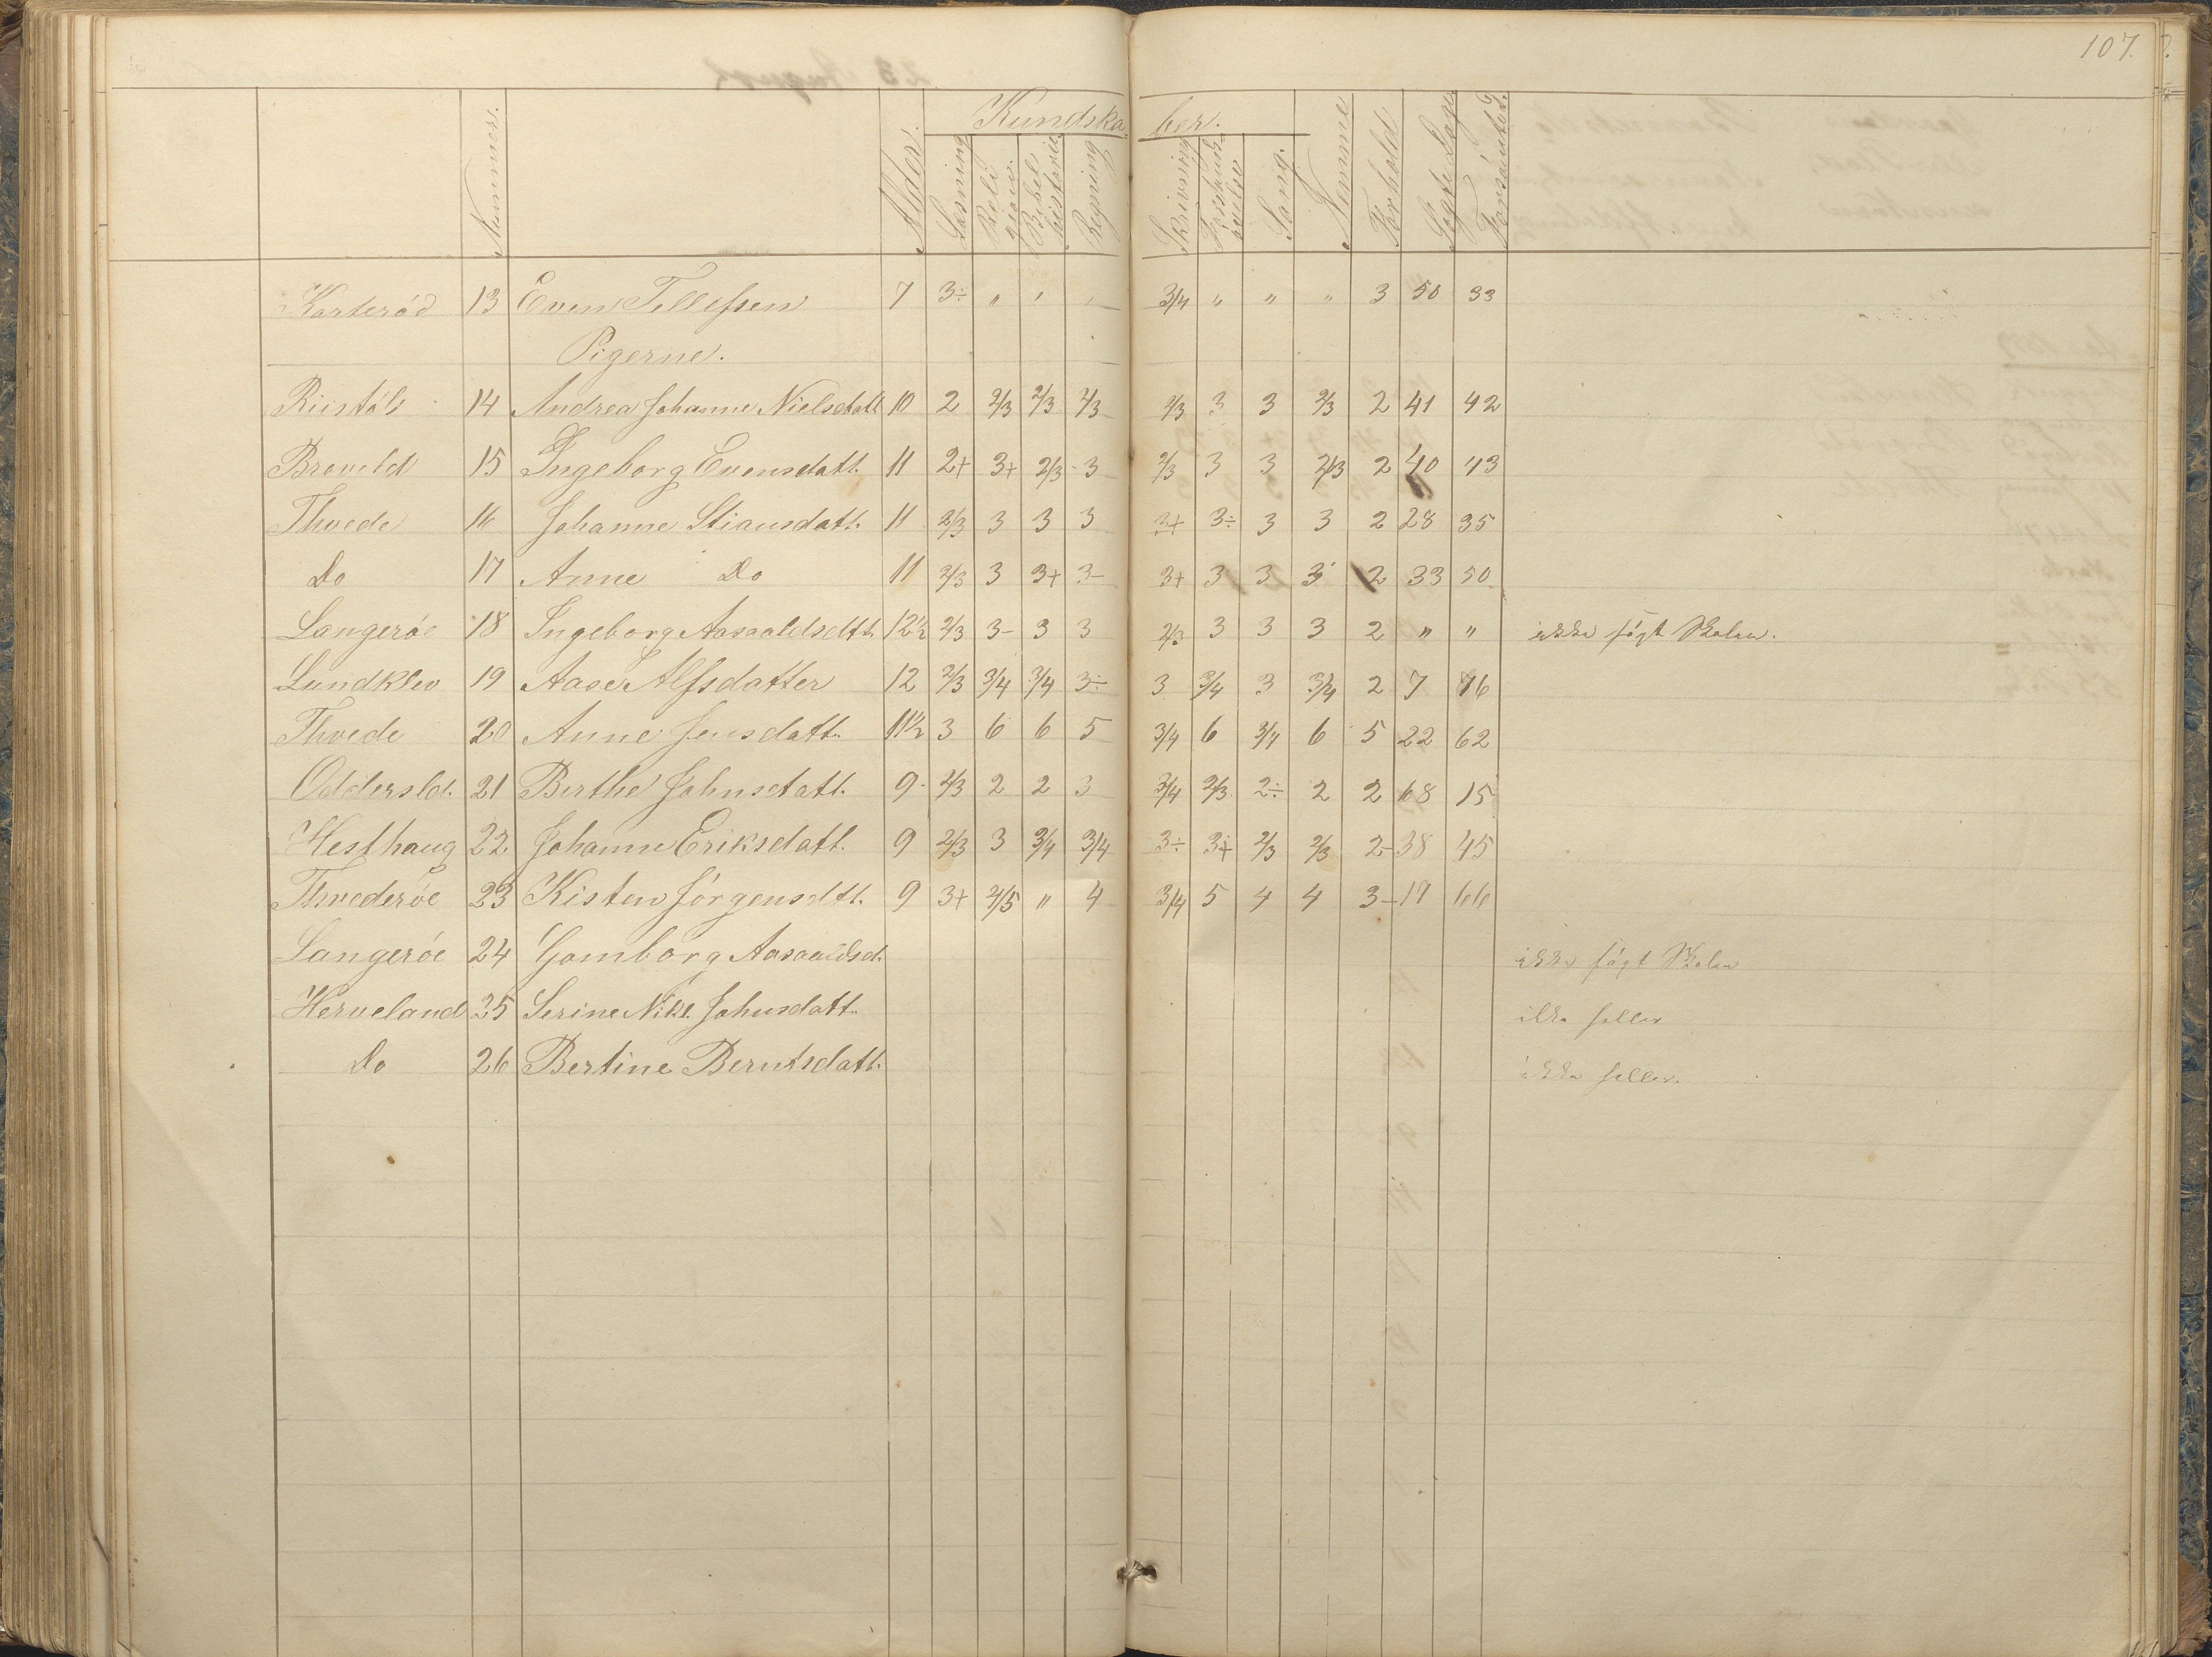 107.
Nummer. Alder. Kundska- ber.
Læsning Religion. Bibelhistorie Regning Skrivning Sang. Nemme Forhold Søgte Dage Forsømte d.
Karterød 13 Even Tellefsen 7 3÷ " " " 3/4 " " " 3 50 33
Pigerne.
14 Andrea Johanne Nielsdatt 10 2 2/3 2/3 2/3 2/3 3 3 2/3 2 41 42
15 Ingeborg Evensdatt. 11 2+ 3+ 2/3 3 2/3 3 3 2/3 2 40 43
Thvede 16 Johanne Stiansdatt. 11 2/3 3 3 3 3+ 3÷ 3 3 2 28 35
Do 17 Anne Do 11 2/3 3 3+ 3- 3+ 3 3 3 2 33 50
Langerøe 18 Ingeborg Aasvaldsdtt. 12½ 2/3 3- 3 3 2/3 3 3 3 2 " " ikke søgt Skolen.
Lundklev 19 Aase Alfsdatter 12 2/3 3/4 3/4 3÷ 3 3/4 3 3/4 2 7 76
Thvede 20 Anne Jensdatt. 11½ 3 6 6 5 3/4 6 3/4 6 5 22 62
Oddersld. 21 Berthe Johnsdatt. 9 2/3 2 2 3 3/4 2/3 2÷ 2 2 68 15
Hesthaug 22 Johanne Eriksdatt. 9 2/3 3 3/4 3/4 3÷ 3+ 2/3 2/3 2- 38 45
Thvederøe 23 Kisten Jørgensdtt. 9 3+ 4/5 " 4 3/4 5 4 4 3- 17 66
Langerøe 24 Gomborg Aasvaldsd. ikke søgt Skolen
Herveland 25 Serine Nikl. Johnsdatt. ikke heller
Do 26 Bertine Berntsdatt. ikke heller.